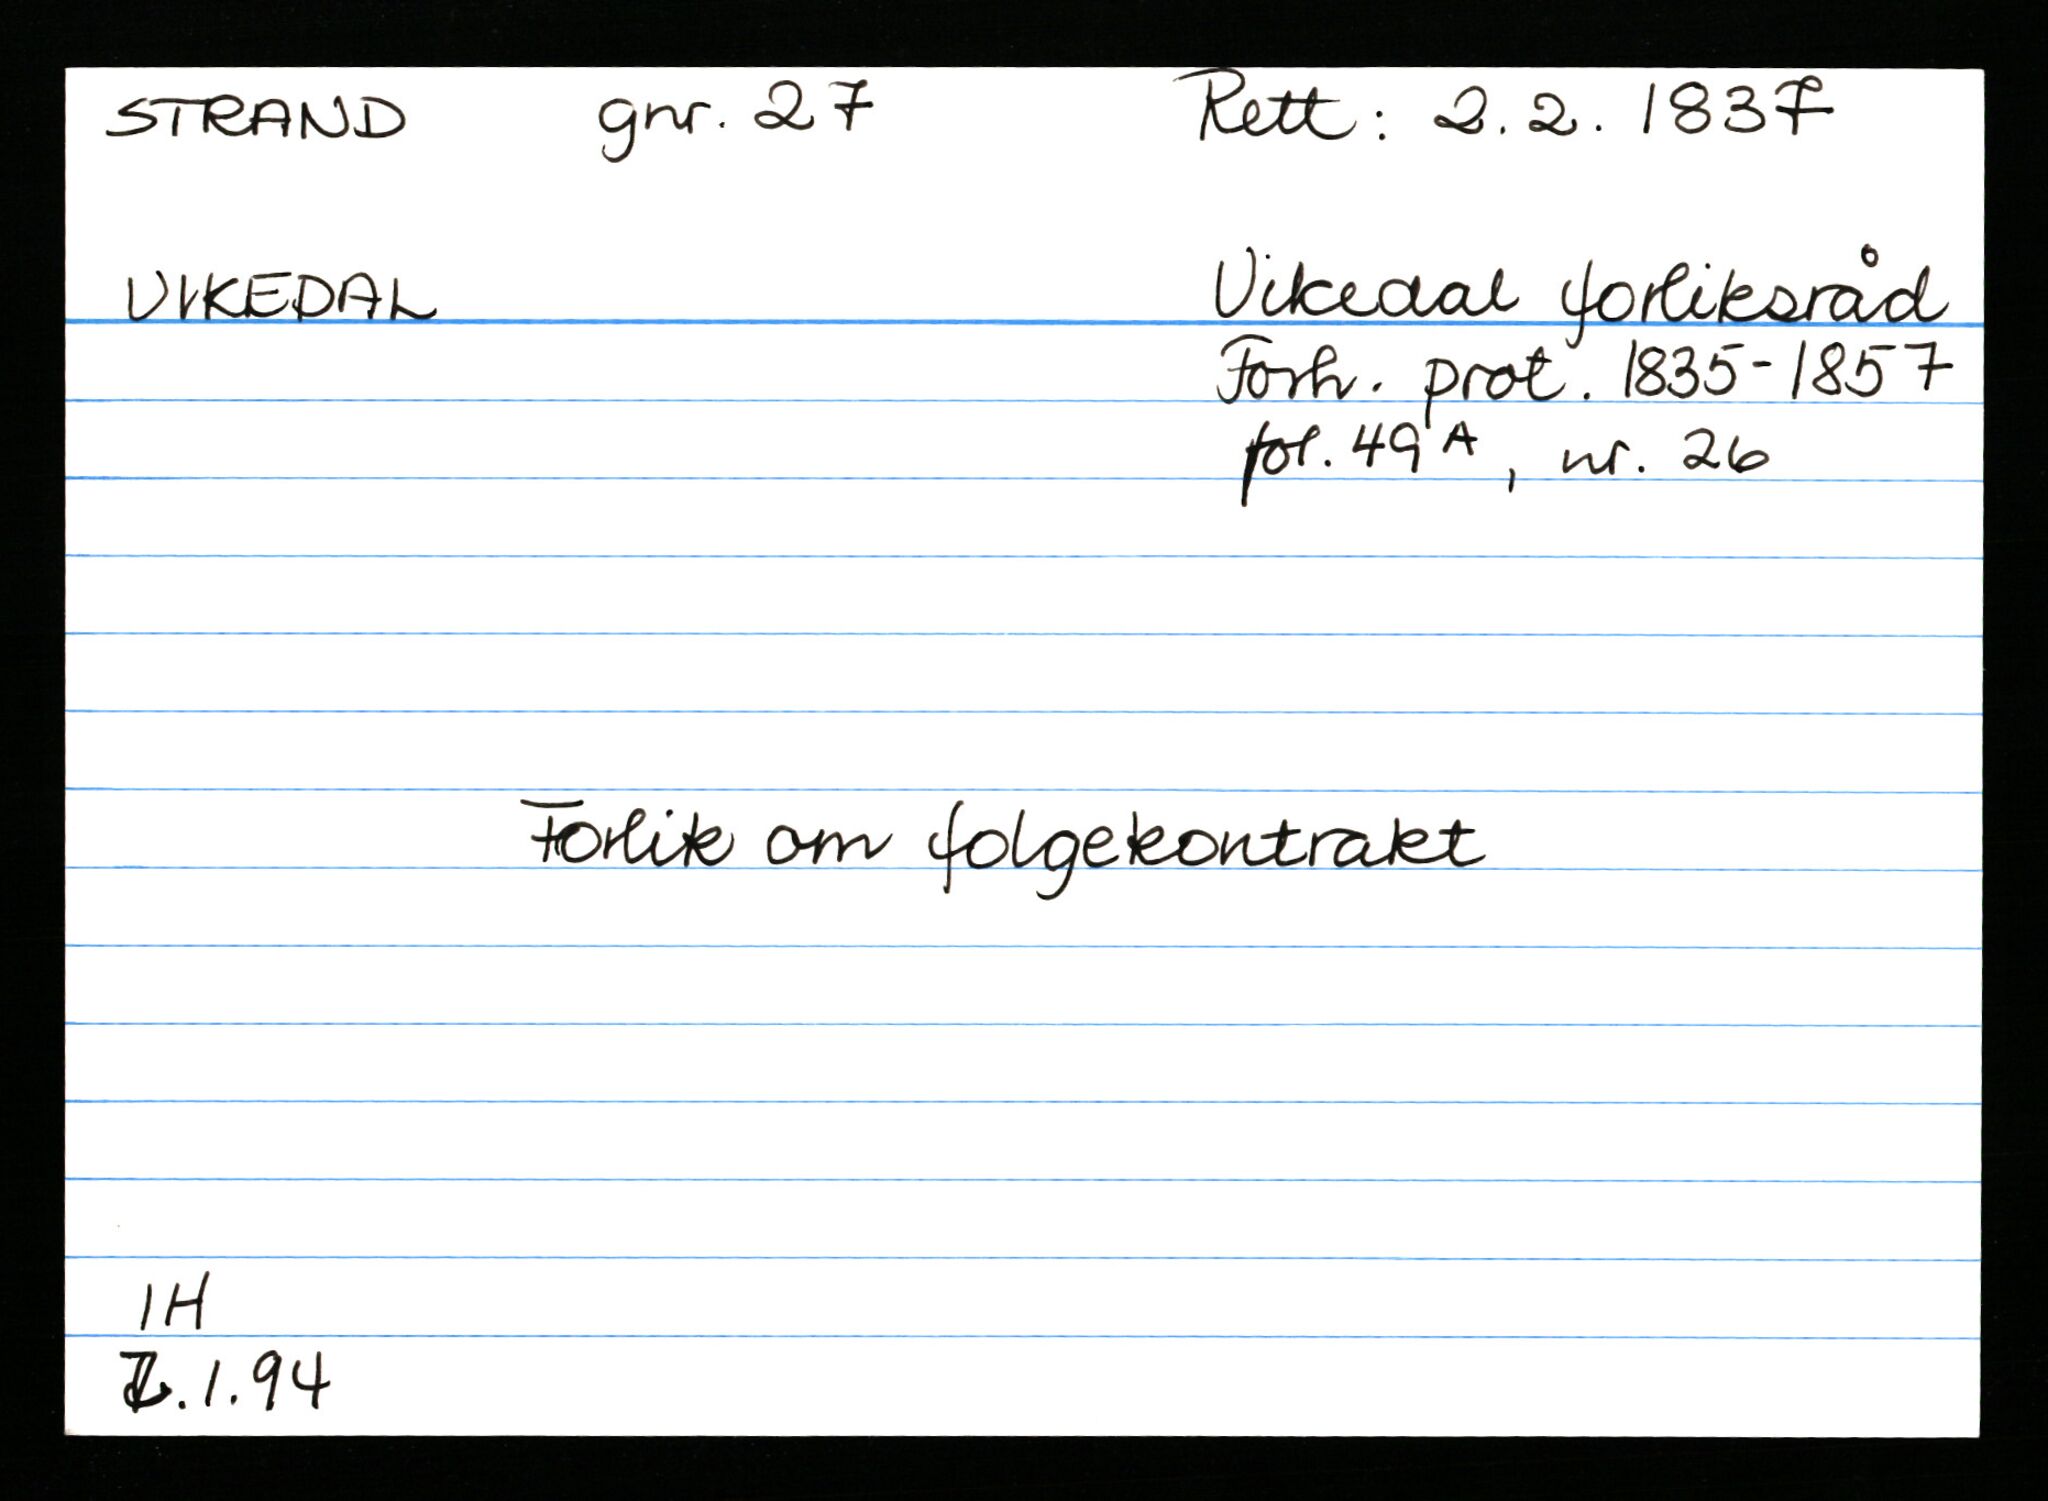 STRAND gnr. 27 Rett: 2.2. 1837
VIKEDAL Vikedal forliksråd
Forh. prot. 1835-1857
fol. 49A, nr. 26
Forlik om folgekontrakt
IH
.1.94